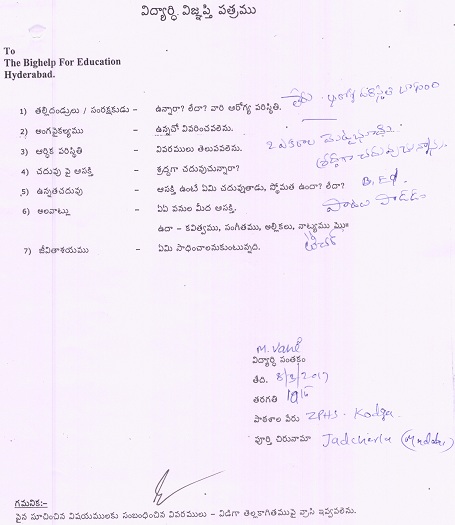 విద్యార్ధి విజ్ఞప్తి పత్రము
To
The Bighelp For Education
Hyderabad.
1) తల్లిదండ్రులు / సంరక్షకుడు – ఉన్నారా? లేదా? వారి ఆరోగ్య పరిస్థితి.
2) అంగవైకల్యము – ఉన్నచో వివరించవలెను.
3) ఆర్ధిక పరిస్థితి – వివరములు తెలుపవలెను. 2 ఎకరాల
4) చదువు పై ఆసక్తి – శ్రద్ధగా చదువుచున్నారా? శ్రద్ధగా చదువుచున్నాను
5) ఉన్నతచదువు – ఆసక్తి ఉంటే ఏమి చదువుతాడు, స్థోమత ఉందా? లేదా? B.Ed
6) అలవాట్లు – ఏఏ పనుల మీద ఆసక్తి. పాటలు పాడడం
ఉదా – కవిత్వము, సంగీతము, అల్లికలు, నాట్యము మొ॥
7) జీవితాశయము – ఏమి సాధించాలనుకుంటున్నది. టీచర్
M. Vani
విద్యార్ధి సంతకం
తేది. 8/3/2017
తరగతి 10th
పాఠశాల పేరు ZPHS. Kodgal
పూర్తి చిరునామా Jadcherla
గమనిక:-
పైన సూచించిన విషయములకు సంబంధించిన వివరములు – విడిగా తెల్లకాగితముపై వ్రాసి ఇవ్వవలెను.